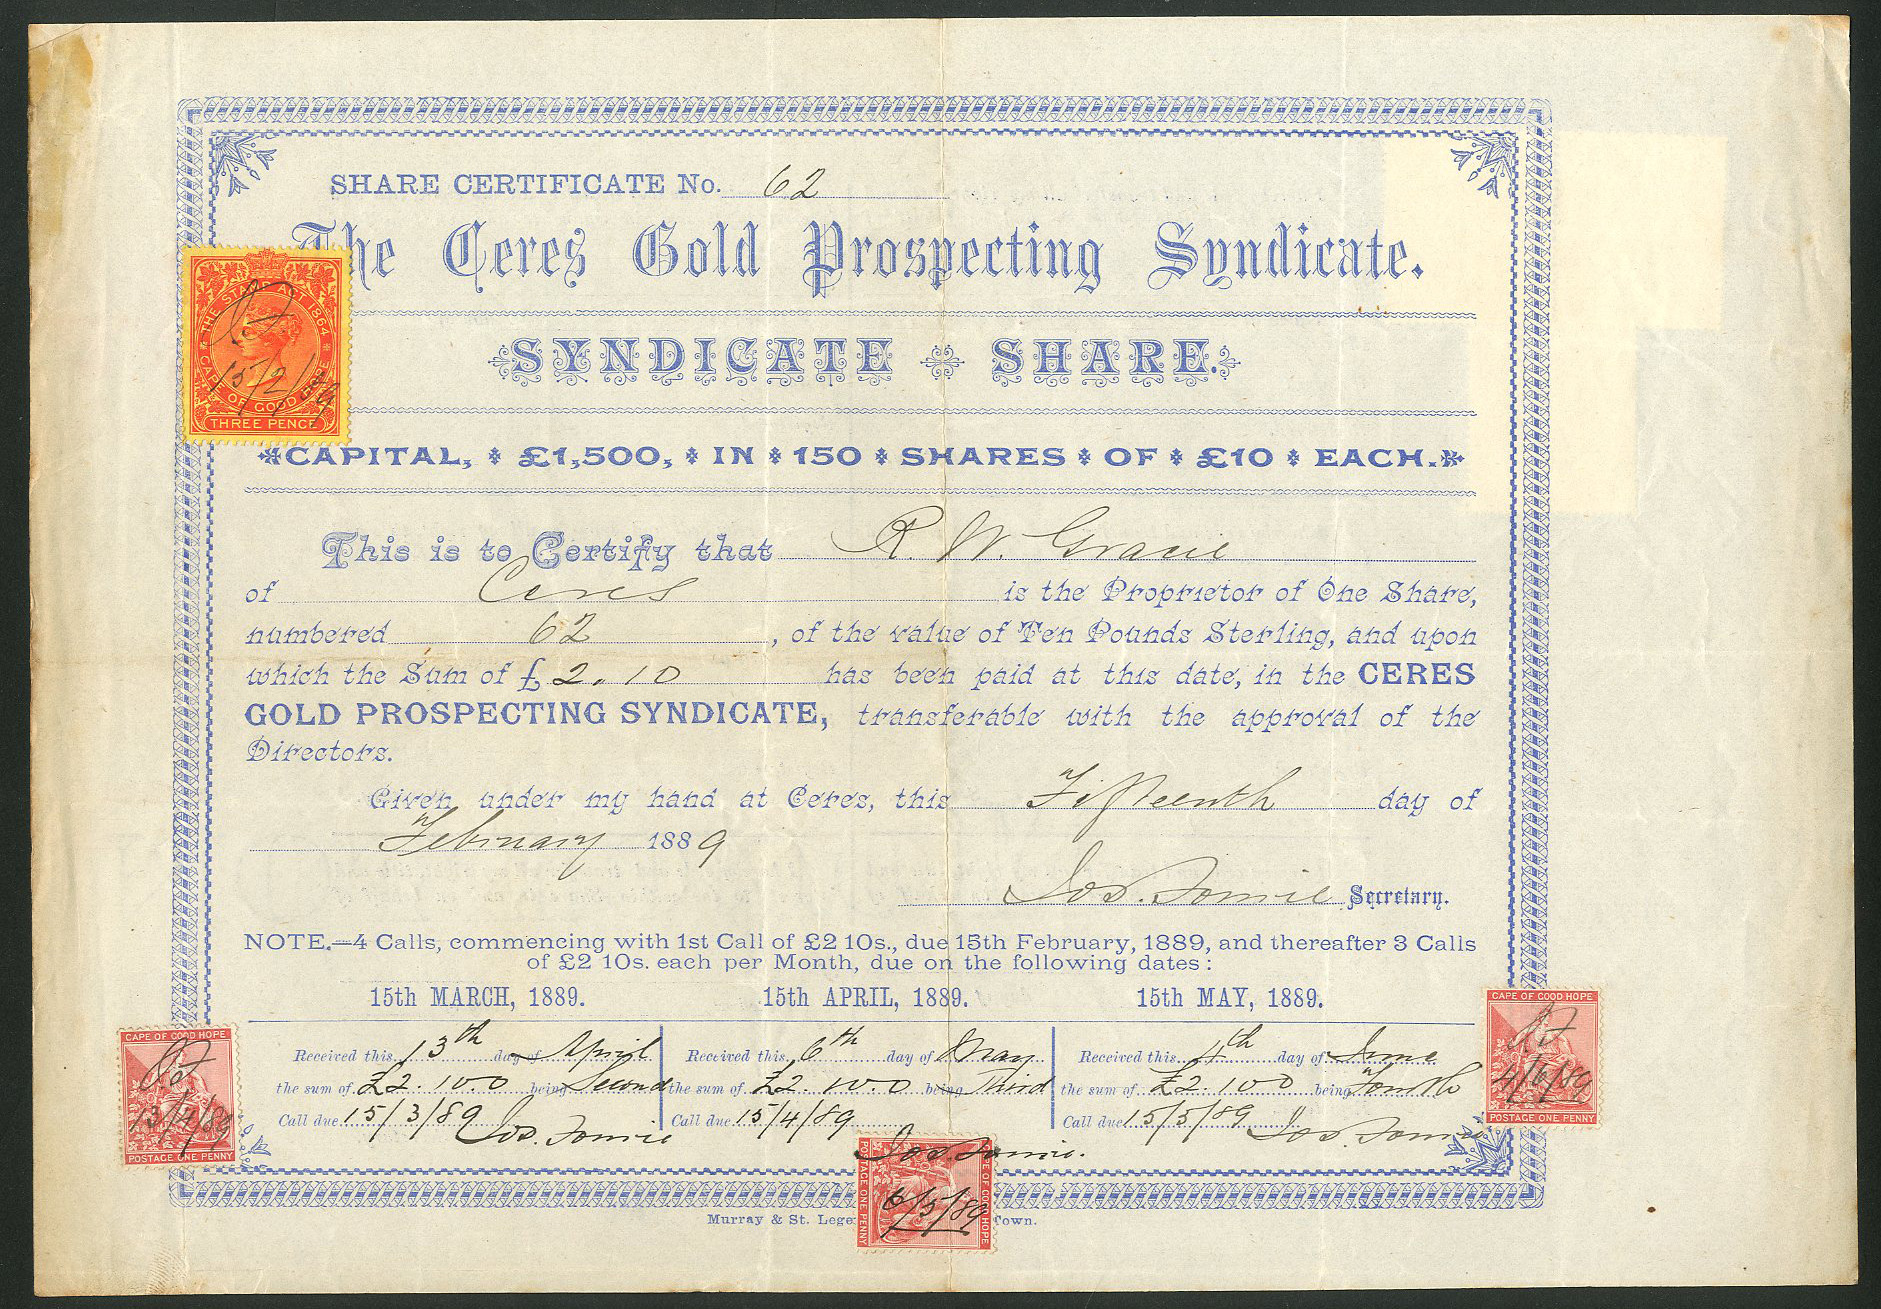 SHARE CERTIFICATE No. 62
The Ceres Gold Prospecting Syndicate.
THE STAMP ACT 1864
CAPE OF GOOD HOPE
15/2/89
THREE PENCE
SYNDICATE SHARE.
CAPITAL, £1,500, IN 150 SHARES OF £10 EACH.
This is to Certify that R. W. Gracie
of Ceres is the Proprietor of One Share,
numbered 62, of the value of Ten Pounds Sterling, and upon
which the Sum of £2.10 has been paid at this date, in the CERES
GOLD PROSPECTING SYNDICATE, transferable with the approval of the
Directors.
Given under my hand at Ceres, this Fifteenth day of
February 1889
Jos. Secretary.
NOTE.—4 Calls, commencing with 1st Call of £2 10s., due 15th February, 1889, and thereafter 3 Calls
of £2 10s. each per Month, due on the following dates:
15th MARCH, 1889. 15th APRIL, 1889. 15th MAY, 1889.
Received this 13th day of April
the sum of £2.10.0 being Second
Call due 15/3/89
Jos.
Received this 6th day of May
the sum of £2.10.0 being Third
Call due 15/4/89
Jos.
Received this 4th day of June
the sum of £2.10.0 being Fourth
Call due 15/5/89
Jos.
CAPE OF GOOD HOPE
13/4/89
POSTAGE ONE PENNY
6/5/89
POSTAGE ONE PENNY
CAPE OF GOOD HOPE
4/6/89
POSTAGE ONE PENNY
Murray & St. Lege Town.